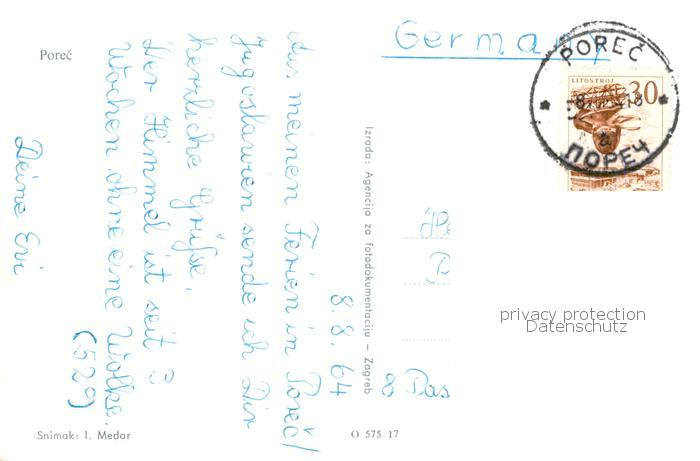 Poreč
8.8.64
Aus meinen Ferien in Poreč/
Jugoslawien sende ich Dir
herzliche Grüße.
Der Himmel ist seit 3
Wochen ohne eine Wolke.
(529)
Deine Evi
Snimak: I. Medar
Izrada: Agencija za fotodokumentaciju – Zagreb
O 575 17
Germany
POREČ
ПОРЕЧ
LITOSTROJ
30
8 Pas
privacy protection
Datenschutz